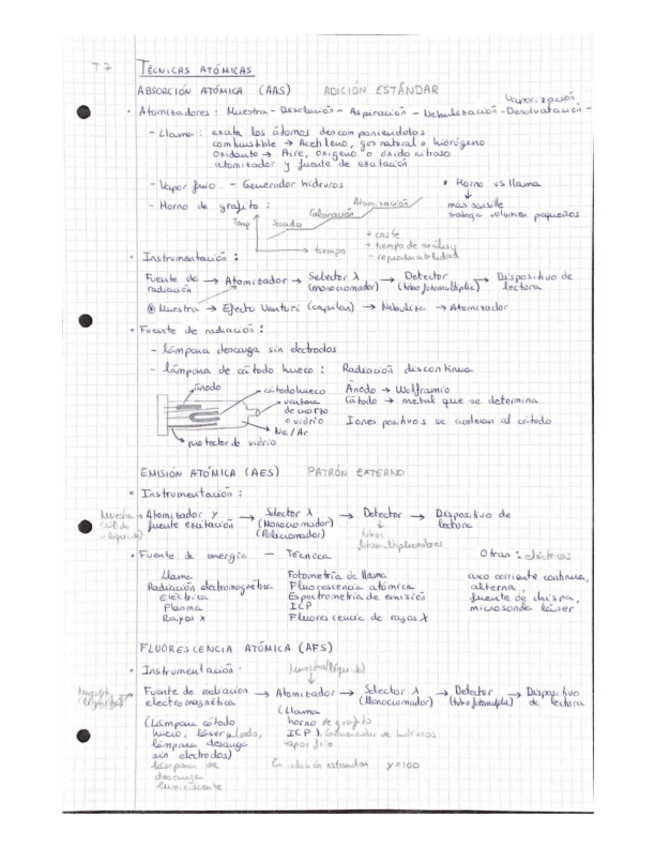 T7
TÉCNICAS ATÓMICAS
ABSORCIÓN ATÓMICA (AAS) ADICIÓN ESTÁNDAR
Vaporización
• Atomizadores: Muestra - Disolución - Aspiración - Nebulización - Desolvatación -
- Llama: excita los átomos descomponiendolos
combustible → Acetileno, gas natural o hidrógeno
Oxidante → Aire, oxígeno o óxido nitroso
atomizador y fuente de excitación
- Vapor frio - Generador hidruros * Horno vs llama
- Horno de grafito:
más sensible
trabaja volumen pequeños
Temp
Secado
Calcinación
Atomización
tiempo
+ coste
+ tiempo de análisis
- reproducibilidad
• Instrumentación:
Fuente de radiación → Atomizador → Selector λ (monocromador) → Detector (tubo fotomultiplic) → Dispositivo de lectura
Muestra → Efecto Venturi (capilar) → Nebuliza → Atomizador
• Fuente de radiación:
- lámpara descarga sin electrodos
- lámpara de cátodo hueco: Radiación discontinua
ánodo
cátodo hueco
ventana de cuarzo o vidrio
Ne/Ar
protector de vidrio
Ánodo → Wolframio
Cátodo → metal que se determina
Iones positivos se aceleran al cátodo
EMISIÓN ATÓMICA (AES) PATRÓN EXTERNO
• Instrumentación:
Muestra
→ Atomizador y fuente excitación → Selector λ (Monocromador) (Policromador) → Detector → Dispositivo de lectura
tubos fotomultiplicadores
• Fuente de energía - Técnica Otras: eléctricas
Llama Fotometría de llama arco corriente continua,
Radiación electromagnética Fluorescencia atómica alterna,
Eléctrica Espectrometría de emisión fuente de chispa,
Plasma ICP microsonda láser
Rayos X Fluorescencia de rayos X
FLUORESCENCIA ATÓMICA (AFS)
• Instrumentación.
Muestra (líquida)
Fuente de radiación electromagnética → Atomizador → Selector λ (Monocromador) → Detector (tubo fotomultip) → Dispositivo de lectura
(Lámpara cátodo
hueco, láser pulsado,
lámpara descarga
sin electrodos)
lámpara de
descarga
luminiscente
(Llama
horno de grafito
ICP) Generador de hidruros
vapor frío
En adición estandar y=100